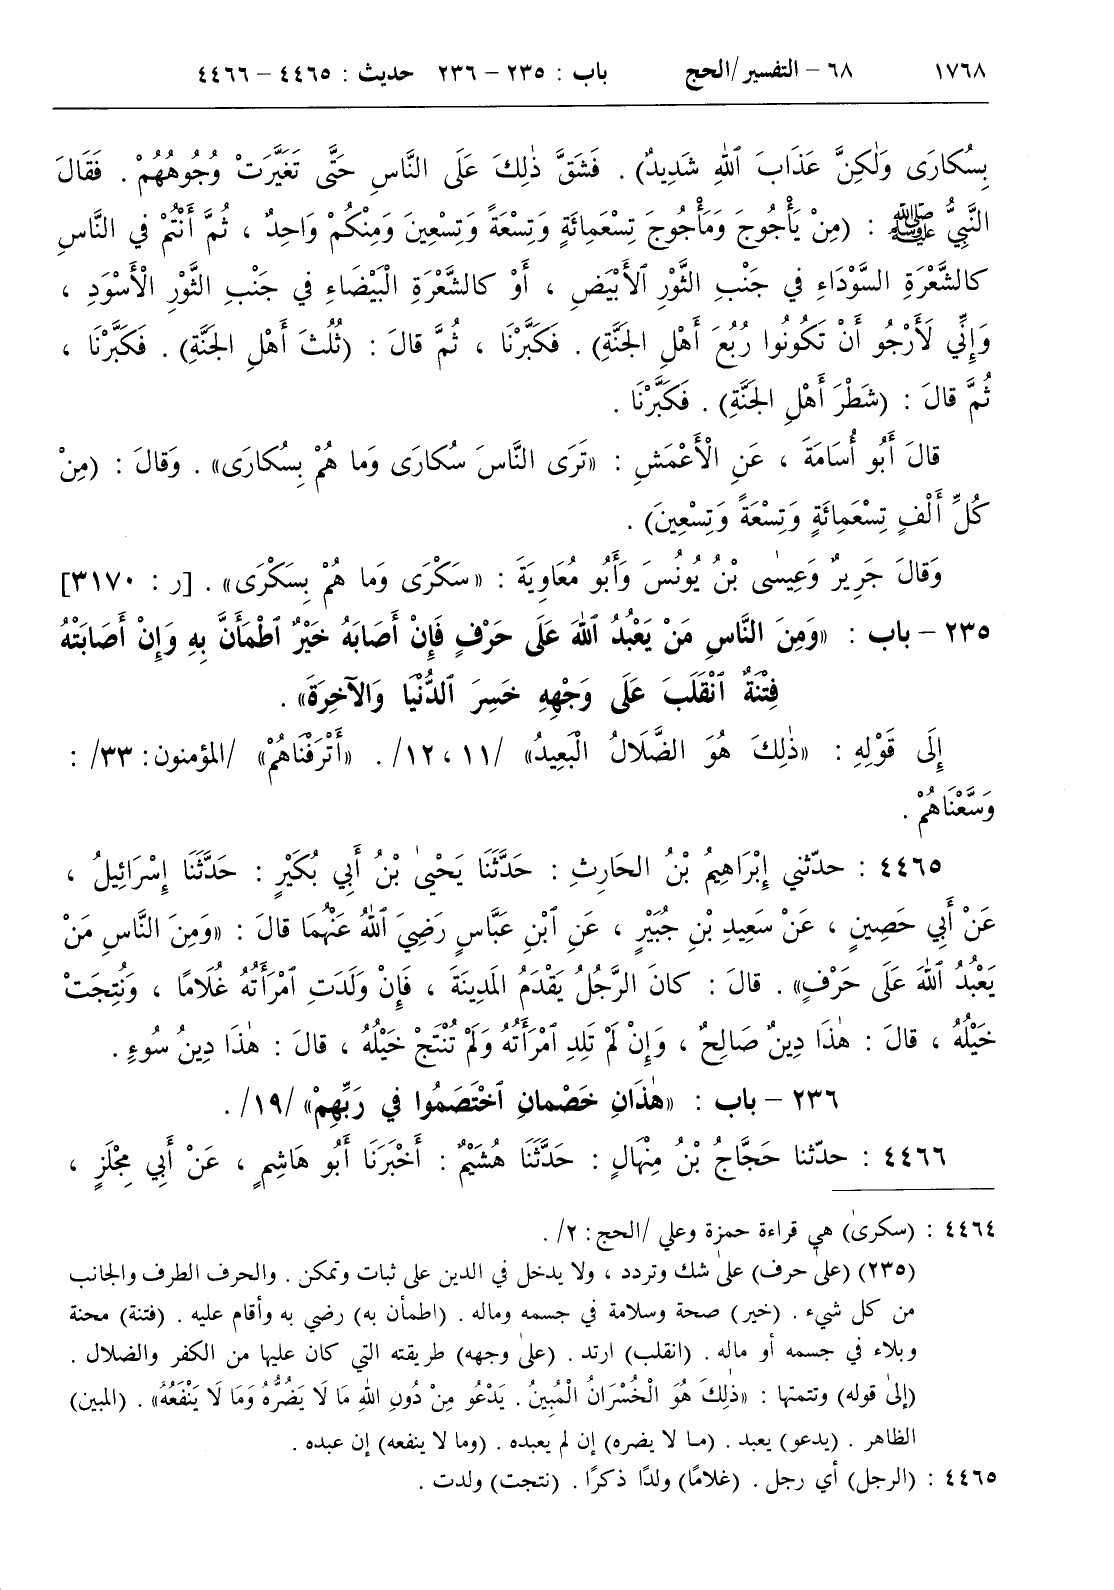 ١٧٦٨ ٦٨ – التفسير/الحج باب : ٢٣٥ – ٢٣٦ حديث : ٤٤٦٥ – ٤٤٦٦
بِسُكَارَى وَلٰكِنَّ عَذَابَ ٱللهِ شَدِيدٌ) . فَشَقَّ ذٰلِكَ عَلَى النَّاسِ حَتَّى تَغَيَّرَتْ وُجُوهُهُمْ . فَقَالَ
النَّبِيُّ ﷺ : (مِنْ يَأْجُوجَ وَمَأْجُوجَ تِسْعَمِائَةٍ وَتِسْعَةً وَتِسْعِينَ وَمِنْكُمْ وَاحِدٌ ، ثُمَّ أَنْتُمْ في النَّاسِ
كالشَّعْرَةِ السَّوْدَاءِ في جَنْبِ الثَّوْرِ ٱلأَبْيَضِ ، أَوْ كالشَّعْرَةِ الْبَيْضَاءِ في جَنْبِ الثَّوْرِ الْأَسْوَدِ ،
وَإِنِّي لَأَرْجُو أَنْ تَكُونُوا رُبُعَ أَهْلِ الجَنَّةِ) . فَكَبَّرْنَا ، ثُمَّ قالَ : (ثُلُثَ أَهْلِ الجَنَّةِ) . فَكَبَّرْنَا ،
ثُمَّ قالَ : (شَطْرَ أَهْلِ الجَنَّةِ) . فَكَبَّرْنَا .
قالَ أَبُو أُسَامَةَ ، عَنِ الْأَعْمَشِ : «تَرَى النَّاسَ سُكارَى وَما هُمْ بِسُكارَى» . وَقالَ : (مِنْ
كُلِّ أَلْفٍ تِسْعَمِائَةٍ وَتِسْعَةً وَتِسْعِينَ) .
وَقالَ جَرِيرٌ وَعِيسٰى بْنُ يُونُسَ وَأَبُو مُعَاوِيَةَ : «سَكْرَى وَما هُمْ بِسَكْرَى» . [ر : ٣١٧٠]
٢٣٥ – باب : «وَمِنَ النَّاسِ مَنْ يَعْبُدُ ٱللهَ عَلَى حَرْفٍ فَإِنْ أَصَابَهُ خَيْرٌ ٱطْمَأَنَّ بِهِ وَإِنْ أَصَابَتْهُ
فِتْنَةٌ ٱنْقَلَبَ عَلَى وَجْهِهِ خَسِرَ ٱلدُّنْيَا وَالآخِرَةَ» .
إِلَى قَوْلِهِ : «ذٰلِكَ هُوَ الضَّلَالُ الْبَعِيدُ» /١١ ، ١٢/ . «أَتْرَفْنَاهُمْ» /المؤمنون: ٣٣/ :
وَسَّعْنَاهُمْ .
٤٤٦٥ : حدّثني إِبْرَاهِيمُ بْنُ الحَارِثِ : حَدَّثَنَا يَحْيىٰ بْنُ أَبِي بُكَيْرٍ : حَدَّثَنَا إِسْرَائِيلُ ،
عَنْ أَبِي حَصِينٍ ، عَنْ سَعِيدِ بْنِ جُبَيْرٍ ، عَنِ ٱبْنِ عَبَّاسٍ رَضِيَ ٱللهُ عَنْهُمَا قالَ : «وَمِنَ النَّاسِ مَنْ
يَعْبُدُ ٱللهَ عَلَى حَرْفٍ» . قالَ : كانَ الرَّجُلُ يَقْدَمُ المَدِينَةَ ، فَإِنْ وَلَدَتِ ٱمْرَأَتُهُ غُلَامًا ، وَنُتِجَتْ
خَيْلُهُ ، قالَ : هٰذَا دِينٌ صَالِحٌ ، وَإِنْ لَمْ تَلِدِ ٱمْرَأَتُهُ وَلَمْ تُنْتَجْ خَيْلُهُ ، قالَ : هٰذَا دِينُ سُوءٍ .
٢٣٦ – باب : «هٰذَانِ خَصْمانِ ٱخْتَصَمُوا في رَبِّهِمْ» /١٩/ .
٤٤٦٦ : حدّثنا حَجَّاجُ بْنُ مِنْهَالٍ : حَدَّثَنَا هُشَيْمٌ : أَخْبَرَنَا أَبُو هَاشِمٍ ، عَنْ أَبِي مِجْلَزٍ ،
٤٤٦٤ : (سكرىٰ) هي قراءة حمزة وعلي /الحج: ٢/ .
(٢٣٥) (علىٰ حرف) علىٰ شك وتردد ، ولا يدخل في الدين على ثبات وتمكن . والحرف الطرف والجانب
من كل شيء . (خير) صحة وسلامة في جسمه وماله . (اطمأن به) رضي به وأقام عليه . (فتنة) محنة
وبلاء في جسمه أو ماله . (انقلب) ارتد . (علىٰ وجهه) طريقته التي كان عليها من الكفر والضلال .
(إلىٰ قوله) وتتمتها : «ذٰلِكَ هُوَ الْخُسْرَانُ الْمُبِينُ . يَدْعُو مِنْ دُونِ اللهِ مَا لَا يَضُرُّهُ وَمَا لَا يَنْفَعُهُ» . (المبين)
الظاهر . (يدعو) يعبد . (مـا لا يضره) إن لم يعبده . (وما لا ينفعه) إن عبده .
٤٤٦٥ : (الرجل) أي رجل . (غلامًا) ولدًا ذكرًا . (نتجت) ولدت .